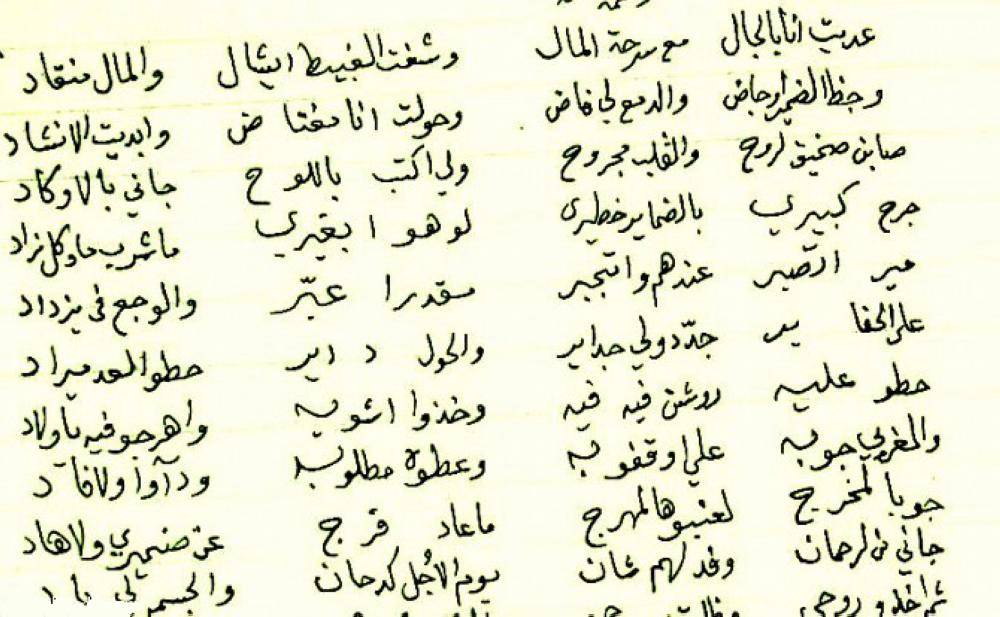 عديت انا بالجال مع سرحة المال وشفت الغبيط انشال والمال منقاد
وحظ الضمير ارجاض والدمع لي فاض وحولت انا مغتاض وابديت الانشاد
صابن ضحيق لروح والقلب مجروح ولي اكتب باللوح جاني بالاوكاد
جرح كبيري بالضماير خطيري لو هو ابغيري ماشرب ماوكل زاد
مير اتصبر عندهم واتجبر مقدرا عبّر والوجع في يزداد
على الحفا ير جدّدولي جداير والحول داير حطوا لعد ميراد
حطو عليه روشن فيه فيه وخذوا اشويه واهرجو فيه ياولاد
والمغربي جوبه علي اوقفوبه وعطوه مطلوبه ودآوآ ولافآد
جوبا لمخرج لعنبوهالمهرج ماعاد فرج عن ضميري ولاهاد
جاني في لرحمان وقد لهم شان يوم الاجل كدحان والجسم لي باد
ثم اخذو روحي